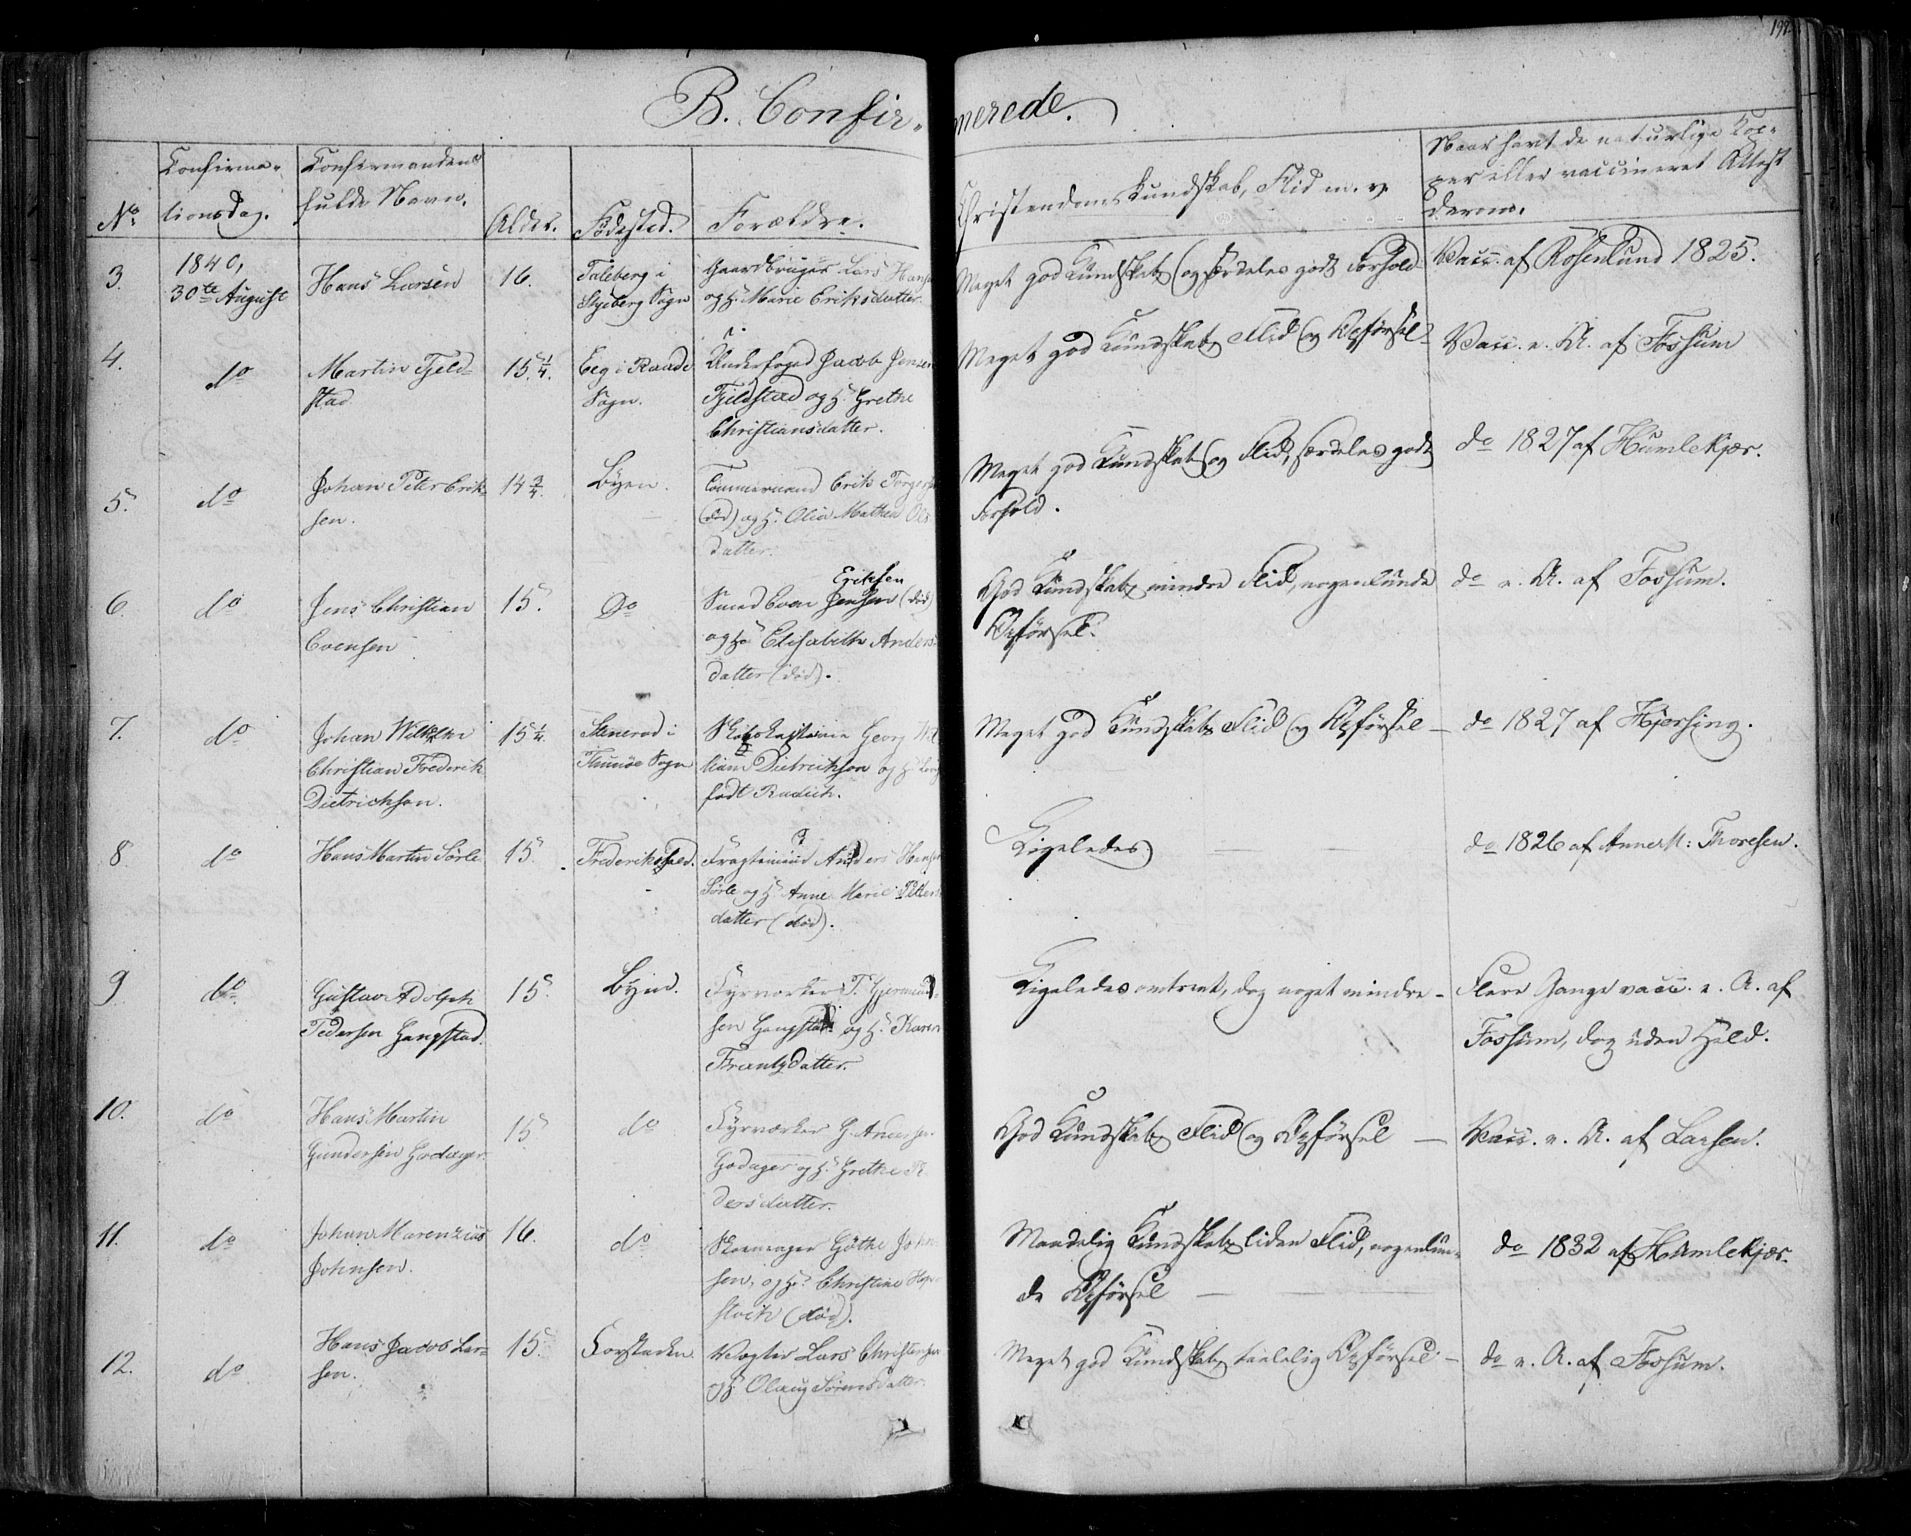 199
B. Confir-
merede.
No
Confirma-
tionsdag.
Confirmandens
fulde Navn.
Alder.
Fødested.
Forældre.
Christendomskundskab, Flid m. v.
Naar havt de naturlige Kop-
per eller vaccineret Attest
derom.
3.
1840,
30te August
Hans Larsen
16.
i
Skjeberg Sogn
Gaardbruger Lars Hansen
og H. Marie Eriksdatter.
Meget god Kundskab og særdeles godt Forhold
Vacc. af Rosenlund 1825.
4.
do
Martin Fjeld-
stad.
15 1/4.
Eeg i Raade
Sogn.
Underfoged Jacob Jensen
Fjeldstad og H. Grethe
Christiansdatter.
Meget god Kundskab, Flid og Opførsel-
Vacc. e. A. af Fossum
5.
do
Johan Peter Erik-
sen.
14 3/4.
Byen.
Tømmermand Erik
(død) og H. Olia Mathea Ols
datter.
Meget god Kundskab og Flid, særdeles godt
Forhold.
do 1827 af Humlekjær.
6.
do
Jens Christian
Evensen
15.
Do
Eriksen
Smed Even Jensen (død)
og H. Elisabeth Anders-
datter (død).
God Kundskab, mindre Flid, nogenlunde
Opførsel.
do e. A. af Fossum.
7.
do
Johan Wilhelm
Christian Frederik
Dietrichson.
15 1/4.
Stenerød i
Thunøe Sogn
Georg Wil
liam Dietrichson og H.
født Radich.
Meget god Kundskab, Flid og Opførsel -
do 1827 af Hjersing.
8.
do
Hans Martin Sørle
15.
Frederikshald.
Fragtemand Anders Hansen
Sørle og H. Anne Marie Petters
datter (død).
Ligeledes - -
do 1826 af Anne M: Thoresen.
9.
do.
Gustav Adolph
Pedersen Gangstad.
15.
Byen.
Fyrvorker P.
sen Gangstad og H. Karen
Frantzdatter.
Ligeledes omtrent, dog noget mindre -
Flere Gange vacc. e. A. af
Fossum, dog uden Held.
10.
do
Hans Martin
Gundersen Godager
15
do
Fyrværker G. Andersen
Godager og H. Grethe
dersdatter.
God Kundskab, Flid og Opførsel -
Vacc. e. A. af Larsen.
11.
do
Johan Marenzius
Johnsen.
16.
do
Skoemager Gøthe John
sen, og H. Christine
(død).
Maadelig Kundskab, liden Flid, nogenlun-
de Opførsel -
do 1832 af Humlekjær.
12.
do
Hans Jacob Lar-
sen.
15.
Forstaden
Vogter Lars Christensen
og H. Olaug Sørensdatter.
Meget god Kundskab, taalelig Opførsel -
do e. A. af Fossum.